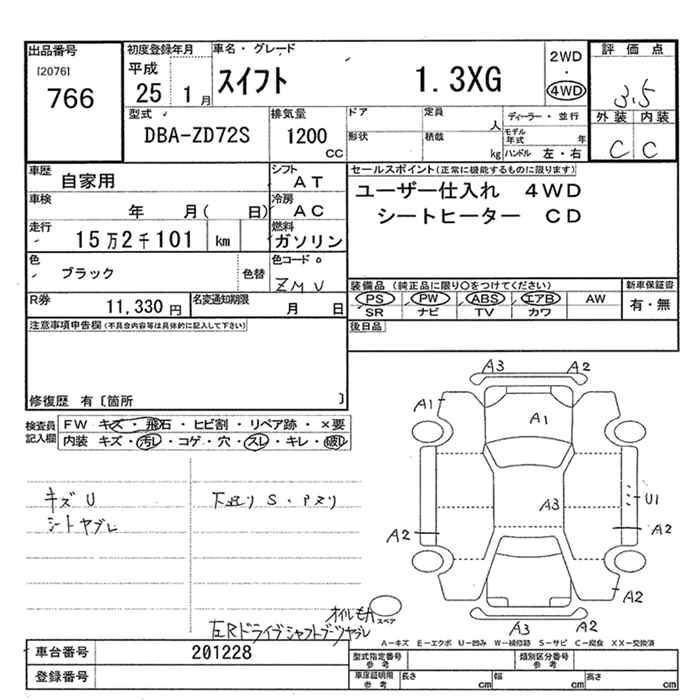 出品番号
[2076]
766
初度登録年月
平成
25 1月
車名・グレード
スイフト 1.3XG
2WD
・
4WD
評価点
3.5
外装 内装
C C
型式
DBA-ZD72S
排気量
1200
CC
ドア
定員
人
形状
積載
kg
ディーラー・並行
モデル年式 年
ハンドル 左・右
車歴
自家用
シフト
AT
車検
年 月( 日)
冷房
AC
走行
15万2千101 km
燃料
ガソリン
色
ブラック
色替
色コード
ZMU
R券
11,330円
名変通知期限
月 日
セールスポイント(正常に機能するものに限ります)
ユーザー仕入れ 4WD
シートヒーター CD
装備品(純正品に限り○をつけてください)
PS PW ABS エアB AW
SR ナビ TV カワ
新車保証書
有・無
後日品
注意事項申告欄(不具合内容等は具体的に記入して下さい)
修復歴 有〔箇所 〕
検査員
記入欄
FW キズ・飛石・ヒビ割・リペア跡・×要
内装 キズ・汚レ・コゲ・穴・スレ・キレ・破レ
キズU
シートヤブレ
下廻り S・
オイルモレ
左Rドライブシャフトブーツヤブレ
A3 A2
A1
A1
A3
U1
A2
A2
A2
A3 A2
スペア
A-キズ E-エクボ U-凹み W-補修跡 S-サビ C-腐食 XX-交換済
車台番号
201228
登録番号
型式指定番号
参考
類別区分番号
参考
車庫証明用
参考
長さ cm
幅 cm
高さ cm